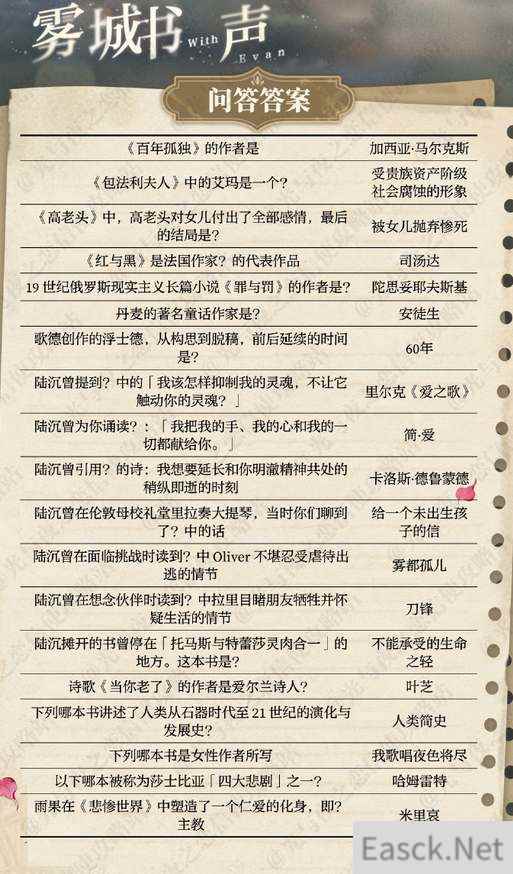 雾城书声
With
Evan
问答答案
《百年孤独》的作者是
加西亚·马尔克斯
《包法利夫人》中的艾玛是一个?
受贵族资产阶级
社会腐蚀的形象
《高老头》中，高老头对女儿付出了全部感情，最后
的结局是?
被女儿抛弃惨死
《红与黑》是法国作家? 的代表作品
司汤达
19 世纪俄罗斯现实主义长篇小说《罪与罚》的作者是?
陀思妥耶夫斯基
丹麦的著名童话作家是?
安徒生
歌德创作的浮士德，从构思到脱稿，前后延续的时间
是?
60年
陆沉曾提到? 中的「我该怎样抑制我的灵魂，不让它
触动你的灵魂? 」
里尔克《爱之歌》
陆沉曾为你诵读? :「我把我的手、我的心和我的一
切都献给你。」
简·爱
陆沉曾引用? 的诗：我想要延长和你明澈精神共处的
稍纵即逝的时刻
卡洛斯·德鲁蒙德
陆沉曾在伦敦母校礼堂里拉奏大提琴，当时你们聊到
了? 中的话
给一个未出生孩
子的信
陆沉曾在面临挑战时读到? 中 Oliver 不堪忍受虐待出
逃的情节
雾都孤儿
陆沉曾在想念伙伴时读到? 中拉里目睹朋友牺牲并怀
疑生活的情节
刀锋
陆沉摊开的书曾停在「托马斯与特蕾莎灵肉合一」的
地方。这本书是?
不能承受的生命
之轻
诗歌《当你老了》的作者是爱尔兰诗人?
叶芝
下列哪本书讲述了人类从石器时代至 21 世纪的演化与
发展史?
人类简史
下列哪本书是女性作者所写
我歌唱夜色将尽
以下哪本被称为莎士比亚「四大悲剧」之一?
哈姆雷特
雨果在《悲惨世界》中塑造了一个仁爱的化身，即?
主教
米里哀
Easck.Net